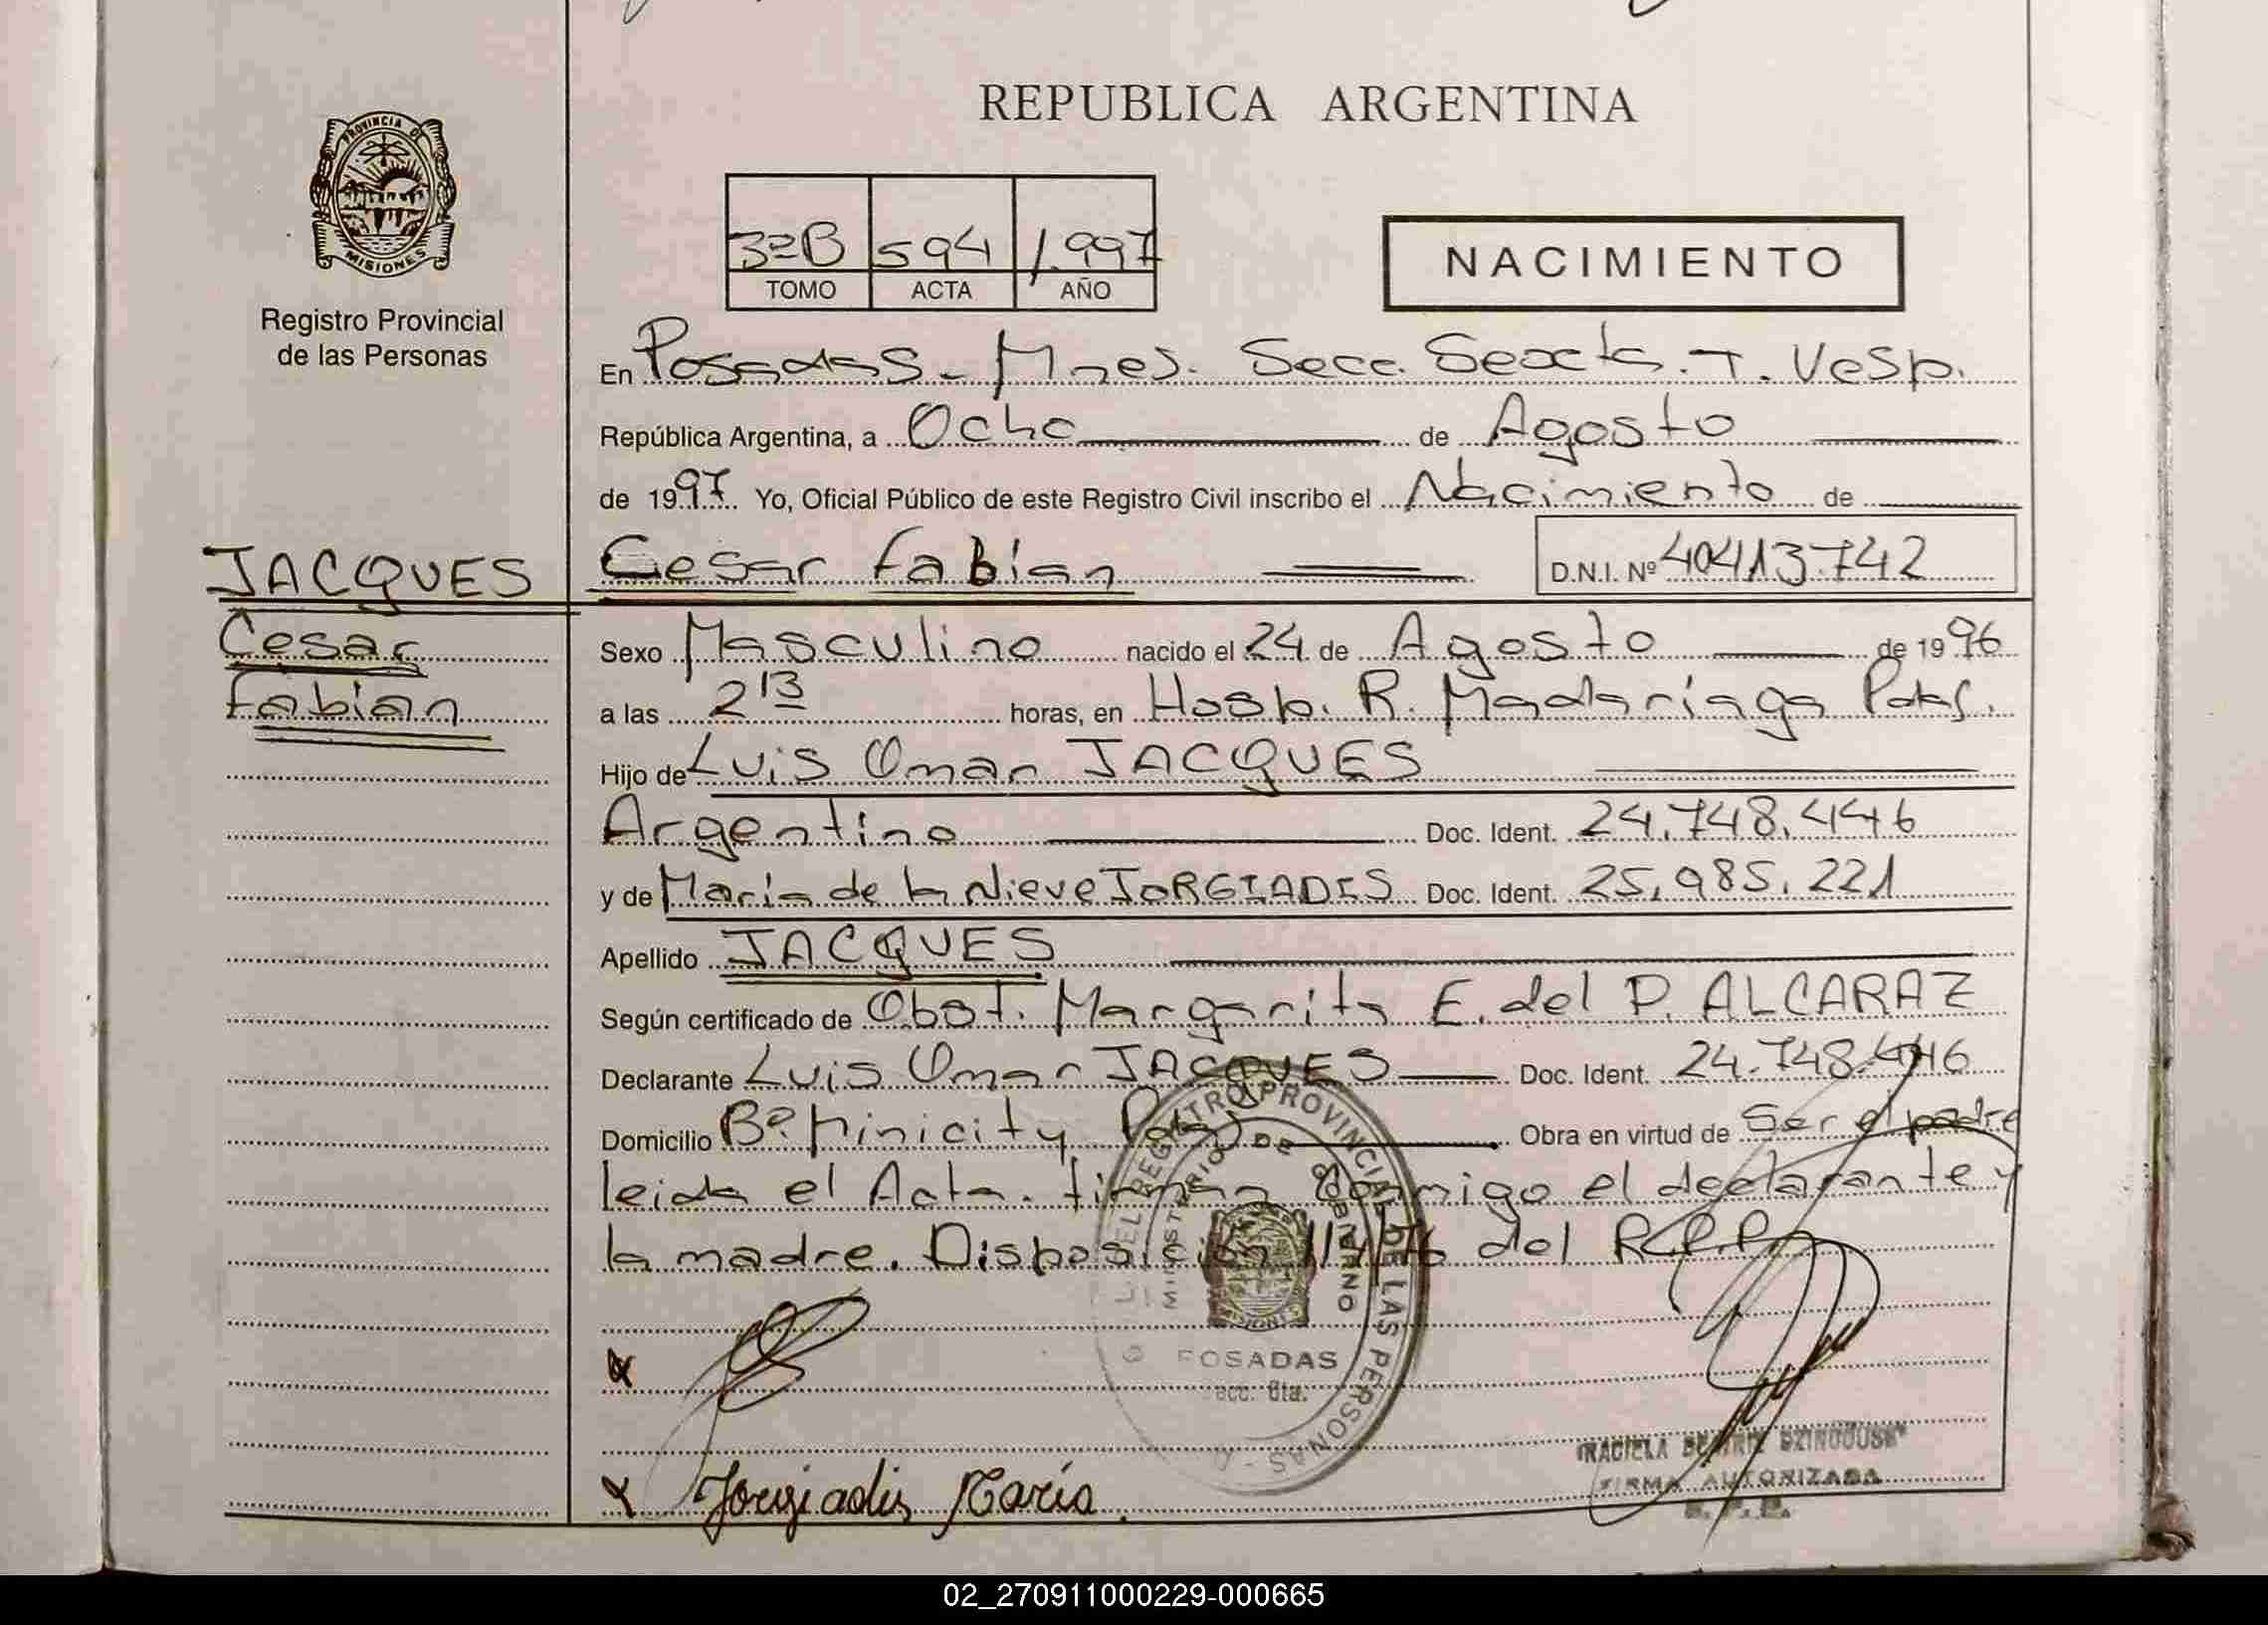 REPUBLICA ARGENTINA
PROVINCIA DE
MISIONES
Registro Provincial
de las Personas
3ºB 594 1.997
TOMO ACTA AÑO
NACIMIENTO
En Posadas - Mnes. Secc. Sexta. T. Vesp.
República Argentina, a Ocho de Agosto
de 1997 Yo, Oficial Público de este Registro Civil inscribo el Nacimiento de
JACQUES
Cesar
Fabian
Cesar Fabian D.N.I. Nº 40413.742
Sexo Masculino nacido el 24 de Agosto de 1996
a las 2 13 horas, en Hosp. R. Madariaga Pdas.
Hijo de Luis Omar JACQUES
Argentino Doc. Ident. 24.748.446
y de María de la Nieve JORGIADIS Doc. Ident. 25.985.221
Apellido JACQUES
Según certificado de Obst. Margarita E. del P. ALCARAZ
Declarante Luis Omar JACQUES Doc. Ident. 24.748.446
Domicilio Bº Minicity Pdas Obra en virtud de Ser el padre
leida el Acta. firman conmigo el declarante y
la madre. Disposición del R.P.P.
REGISTRO PROVINCIAL DE LAS PERSONAS
MINISTERIO DE GOBIERNO
POSADAS
Secc. 6ta.
Jorgiadis María
BEATRIZ
FIRMA AUTORIZADA
02_270911000229-000665